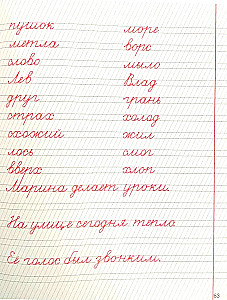 пушок море
метла ворс
слово мыло
Лев Влад
друг грань
страх холод
схожий жил
лось смог
вверх хлоп
Марина делает уроки.
На улице сегодня тепло
Её голос был звонким.
63